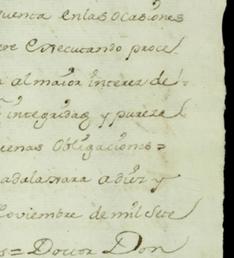 quenta enlas ocasiones
executando proce
al maior interez de
integridad y pureza
buenas obligaciones=
adalaxara a diez y
Noviembre de mil sete
= Doctor Don